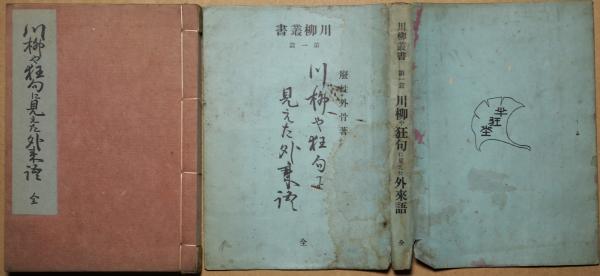 川柳や狂句に見えた外来語
全
川柳叢書
第一篇
廢姓外骨著
川柳や狂句に
見えた外来語
全
川柳叢書
第一篇
川柳や狂句に見えた外來語
全
半狂堂